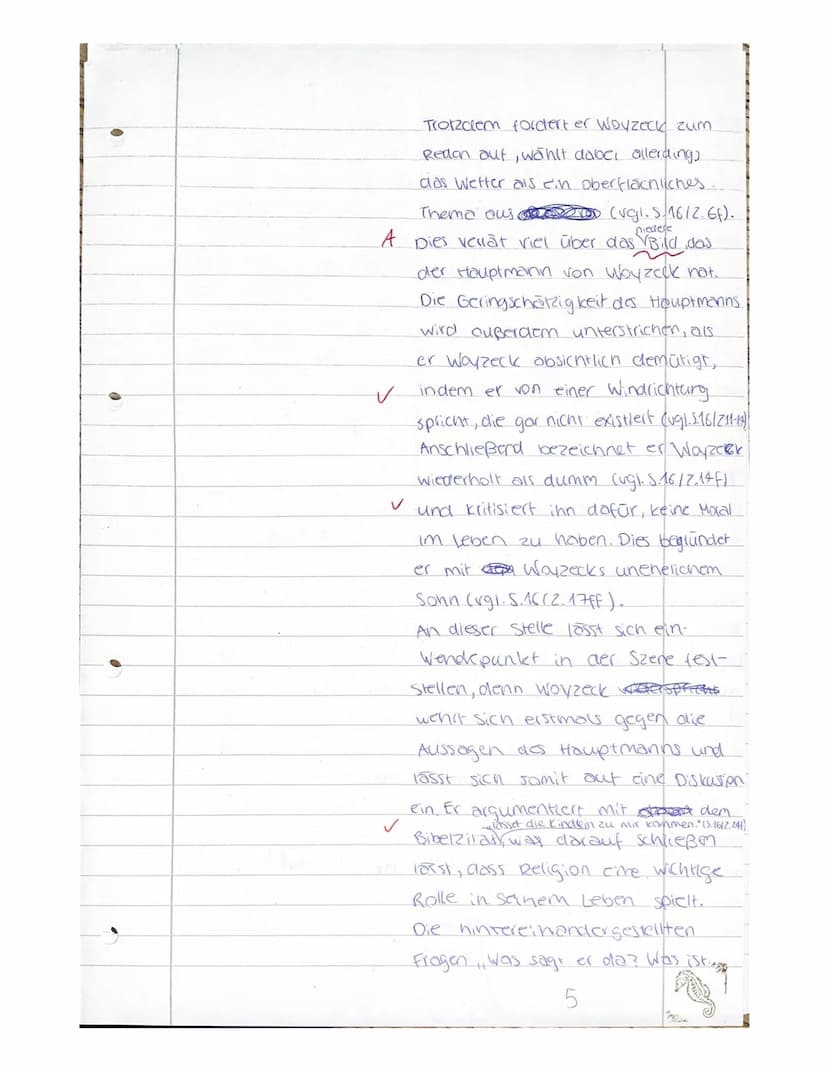 Trotzdem fordert er Woyzeck zum
Reden auf, wählt dabei allerdings
das Wetter als ein oberflächliches
Thema aus (vgl. S. 16/Z. 6f).
niedere
A Dies verrät viel über das Bild, das
der Hauptmann von Woyzeck hat.
Die Geringschätzigkeit des Hauptmanns
wird außerdem unterstrichen, als
er Woyzeck absichtlich demütigt,
indem er von einer Windrichtung
spricht, die gar nicht existiert (vgl. S16/Z11-14)
Anschließend bezeichnet er Woyzeck
wiederholt als dumm (vgl. S.16/Z.14f)
und kritisiert ihn dafür, keine Moral
im Leben zu haben. Dies begründet
er mit Woyzecks unehelichem
Sohn (vgl. S.16/Z.17ff).
An dieser Stelle lässt sich ein
Wendepunkt in der Szene fest-
stellen, denn Woyzeck widerspricht
wehrt sich erstmals gegen die
Aussagen des Hauptmanns und
lässt sich somit auf eine Diskusion
ein. Er argumentiert mit dem
„lasset die Kindlein zu mir kommen."
Bibelzitat, was darauf schließen
lässt, dass Religion eine wichtige
Rolle in seinem Leben spielt.
Die hintereinandergestellten
Fragen „Was sagt er da? Was ist
5